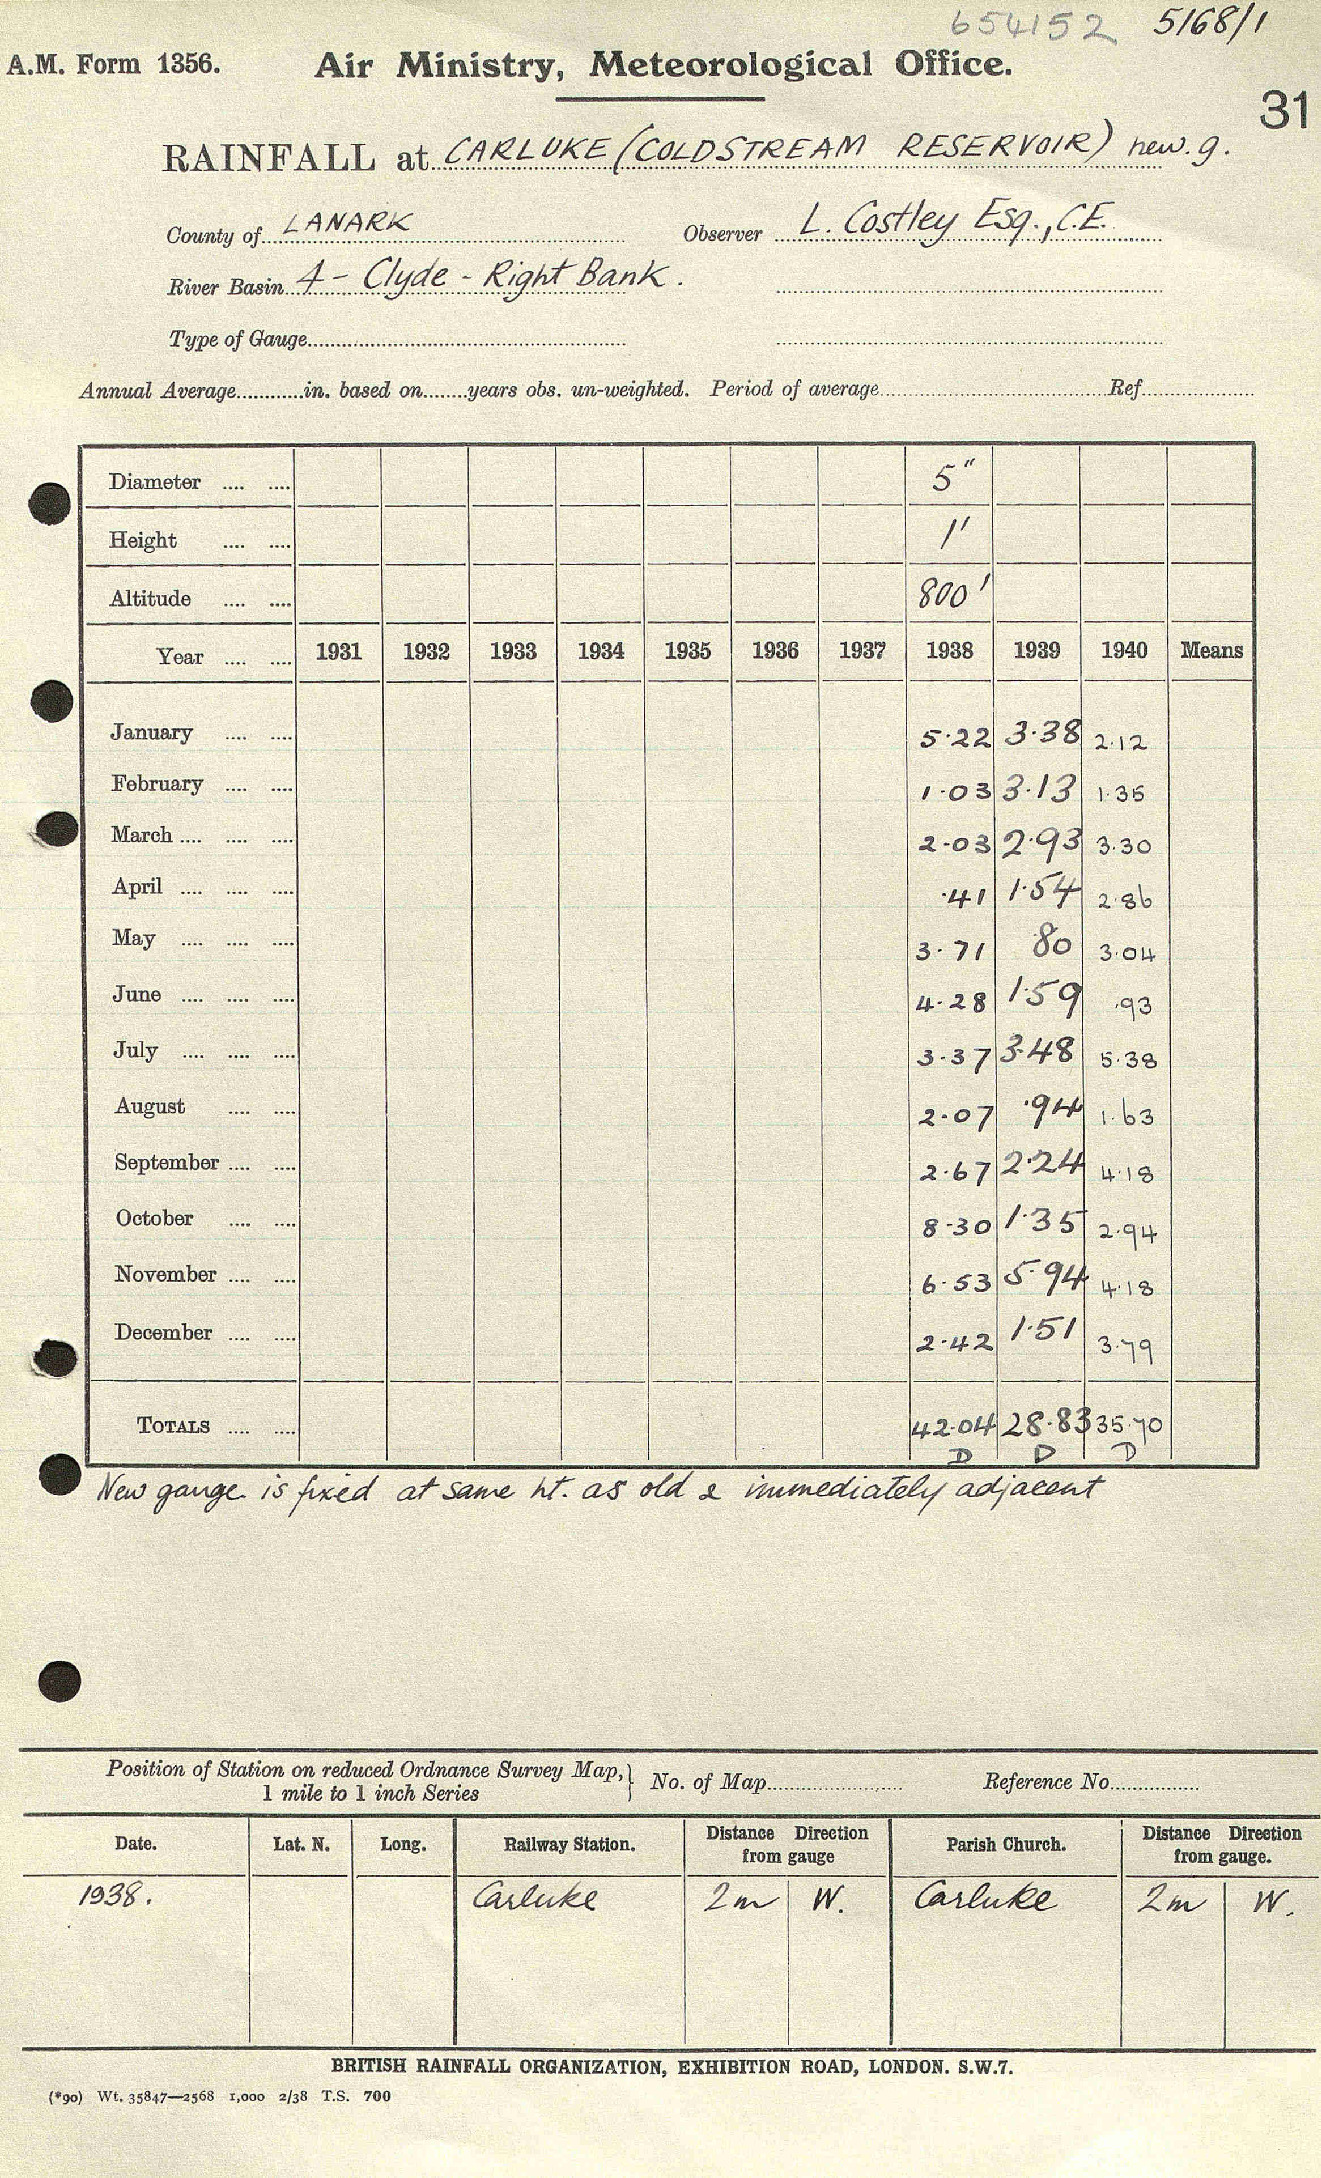 654152 5168/1
A.M. Form 1356. Air Ministry, Meteorological Office.
31
RAINFALL at CARLUKE (COLDSTREAM RESERVOIR) new. g.
County of LANARK Observer L. Costley Esq., C.E.
River Basin 4 - Clyde - Right Bank.
Type of Gauge
Annual Average in. based on years obs. un-weighted. Period of average Ref
Diameter 5"
Height 1'
Altitude 800'
Year 1931 1932 1933 1934 1935 1936 1937 1938 1939 1940 Means
January 5.22 3.38 2.12
February 1.03 3.13 1.35
March 2.03 2.93 3.30
April .41 1.54 2.86
May 3.71 .80 3.04
June 4.28 1.59 .93
July 3.37 3.48 5.38
August 2.07 .94 1.63
September 2.67 2.24 4.18
October 8.30 1.35 2.94
November 6.53 5.94 4.18
December 2.42 1.51 3.79
TOTALS 42.04 28.83 35.70
D D D
New gauge is fixed at same ht. as old & immediately adjacent
Position of Station on reduced Ordnance Survey Map, } No. of Map Reference No.
1 mile to 1 inch Series
Date. Lat. N. Long. Railway Station. Distance Direction from gauge Parish Church. Distance Direction from gauge.
1938. Carluke 2m W. Carluke 2m W.
BRITISH RAINFALL ORGANIZATION, EXHIBITION ROAD, LONDON. S.W.7.
(*90) Wt. 35847—2568 1,000 2/38 T.S. 700